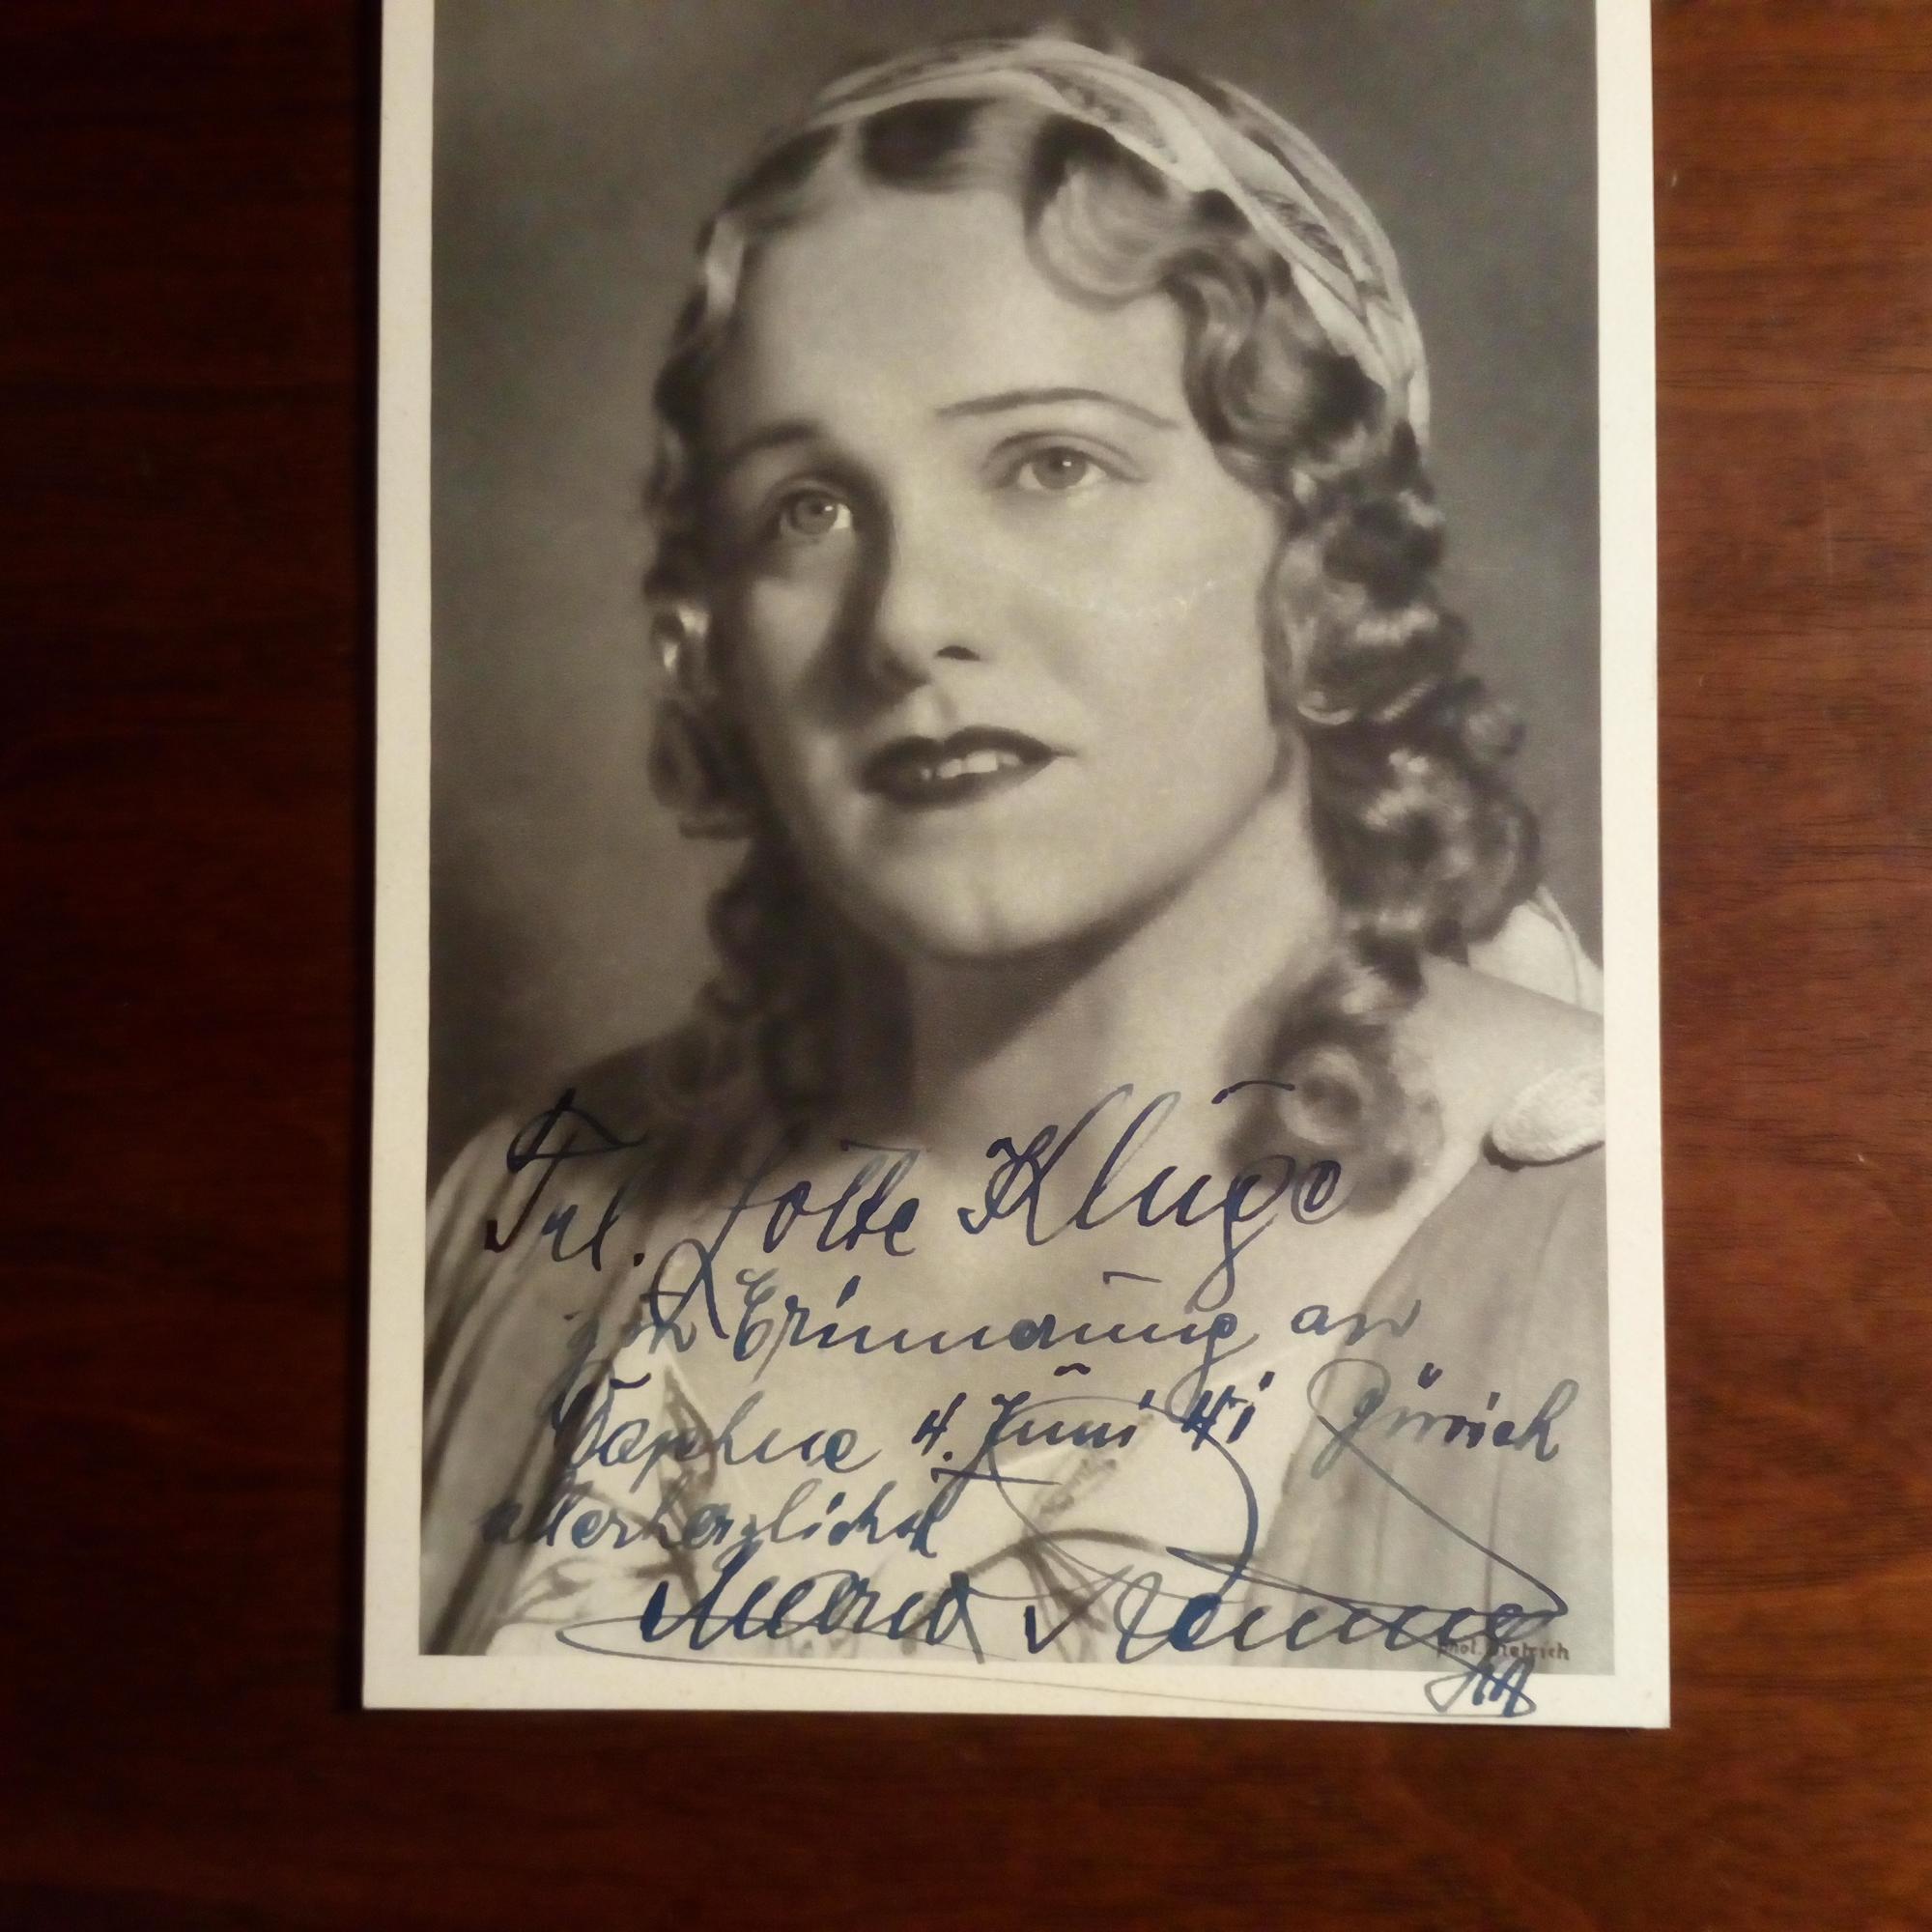 Frl. Lotte Kluge
zur Erinnerung an
Daphne 4. Juni 41 Zürich
allerherzlichst
Maria Reining
phot. Dietrich